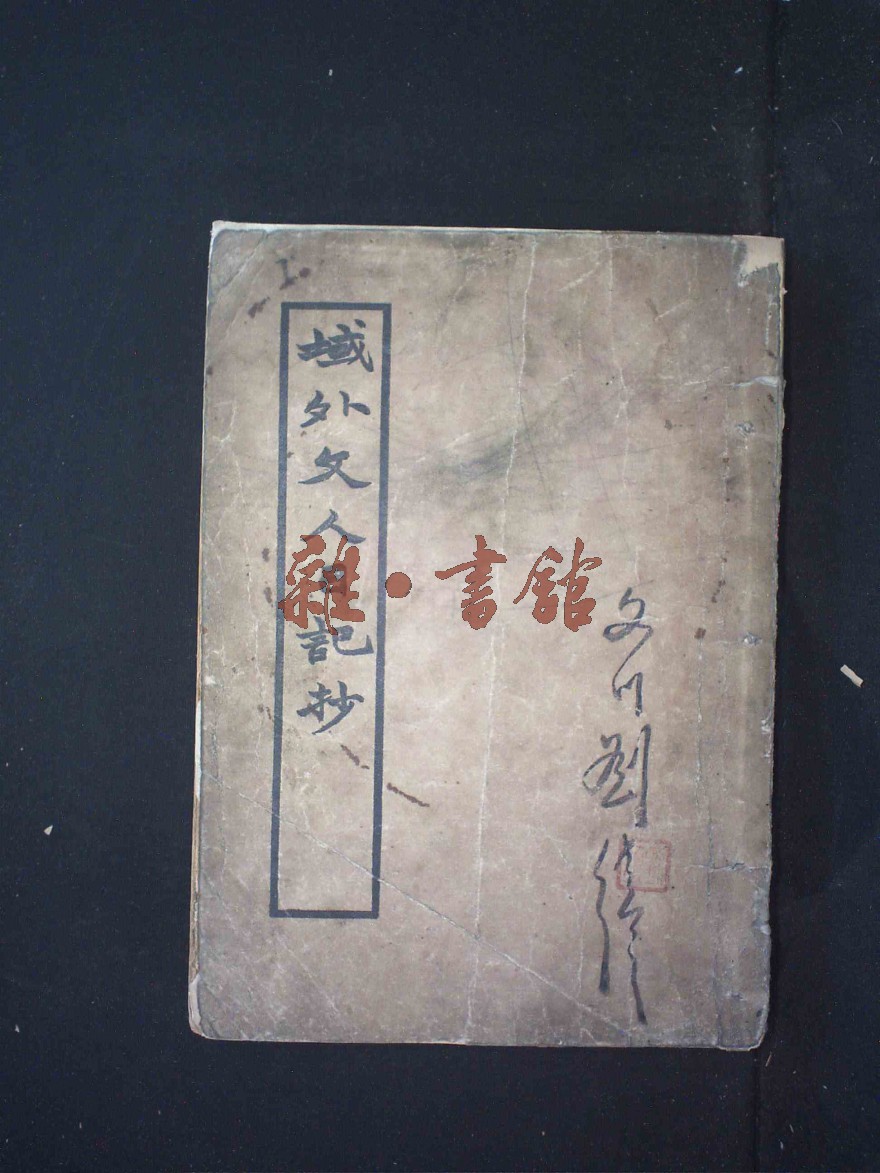 文川劉
域外文人日記抄
雜·書館